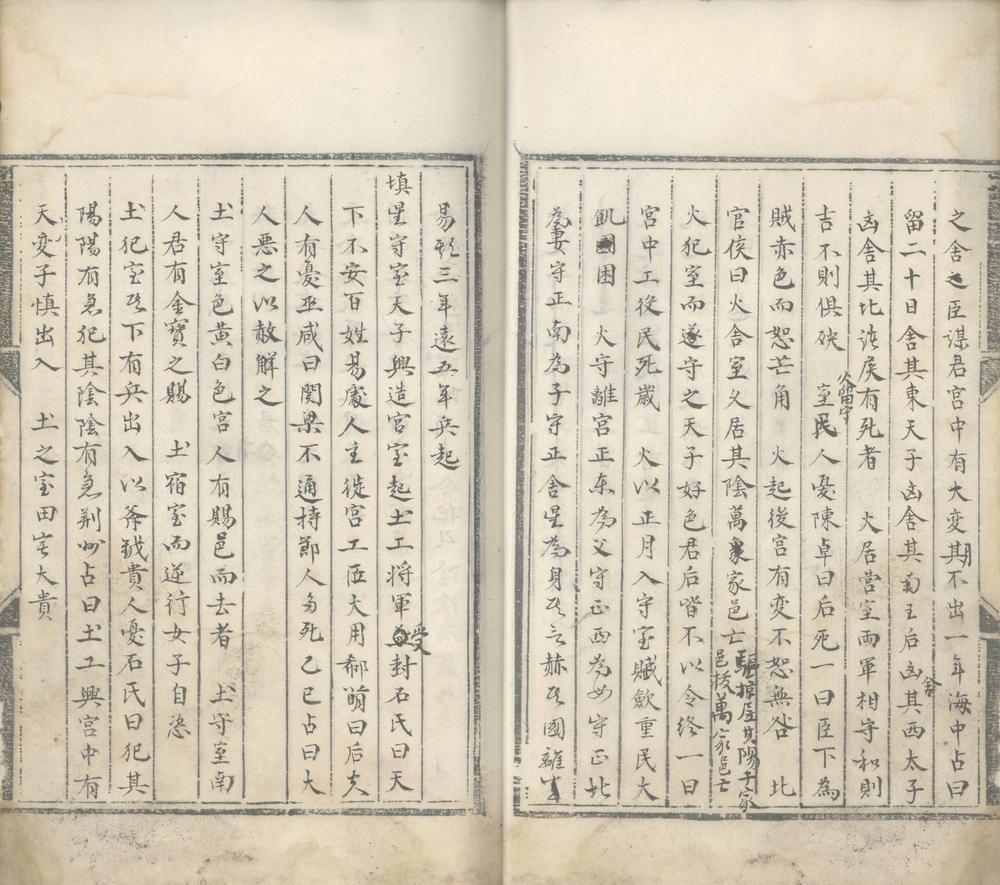 之舍之臣謀君宮中有大变期不出一年海中占曰
留二十日舍其東天子凶舍其南王后凶舍其西太子
凶舍其北諸侯有死者　火居宮室両軍相守和則
吉不則俱殃　火留守室民人憂陳卓曰后死一曰臣下為
賊赤色而怒芒角　火起後宮有変不怒無咎　北
官侯曰火舍室久居其陰萬衆家邑亡驅掠居其陽千家邑扳萬家邑亡
火犯室而遂守之天子好色君后皆不以令終一曰
宮中工役民死歳　火以正月入守室賦歛重民大
飢國困　火守離宮正东為父守正西為女守正北
為妻守正南為子守正舍星為身以言赫以國離
易形三年遠五年兵起
填星守室天子興造宮室起土工将軍受封石氏曰天
下不安百姓易處人主徙宮工匠大用郗萌曰后夫
人有憂巫咸曰関梁不通持節人多死　乙巳占曰大
人惡之以赦解之
土守室色黄白色宮人有賜邑而去者　土守室南
人君有金寶之賜　土宿室而逆行女子自恣
土犯室以下有兵出入以斧鉞貴人憂石氏曰犯其
陽陽有急犯其陰陰有急荆州占曰土工興宮中有
天变子慎出入　土之室田宅大貴